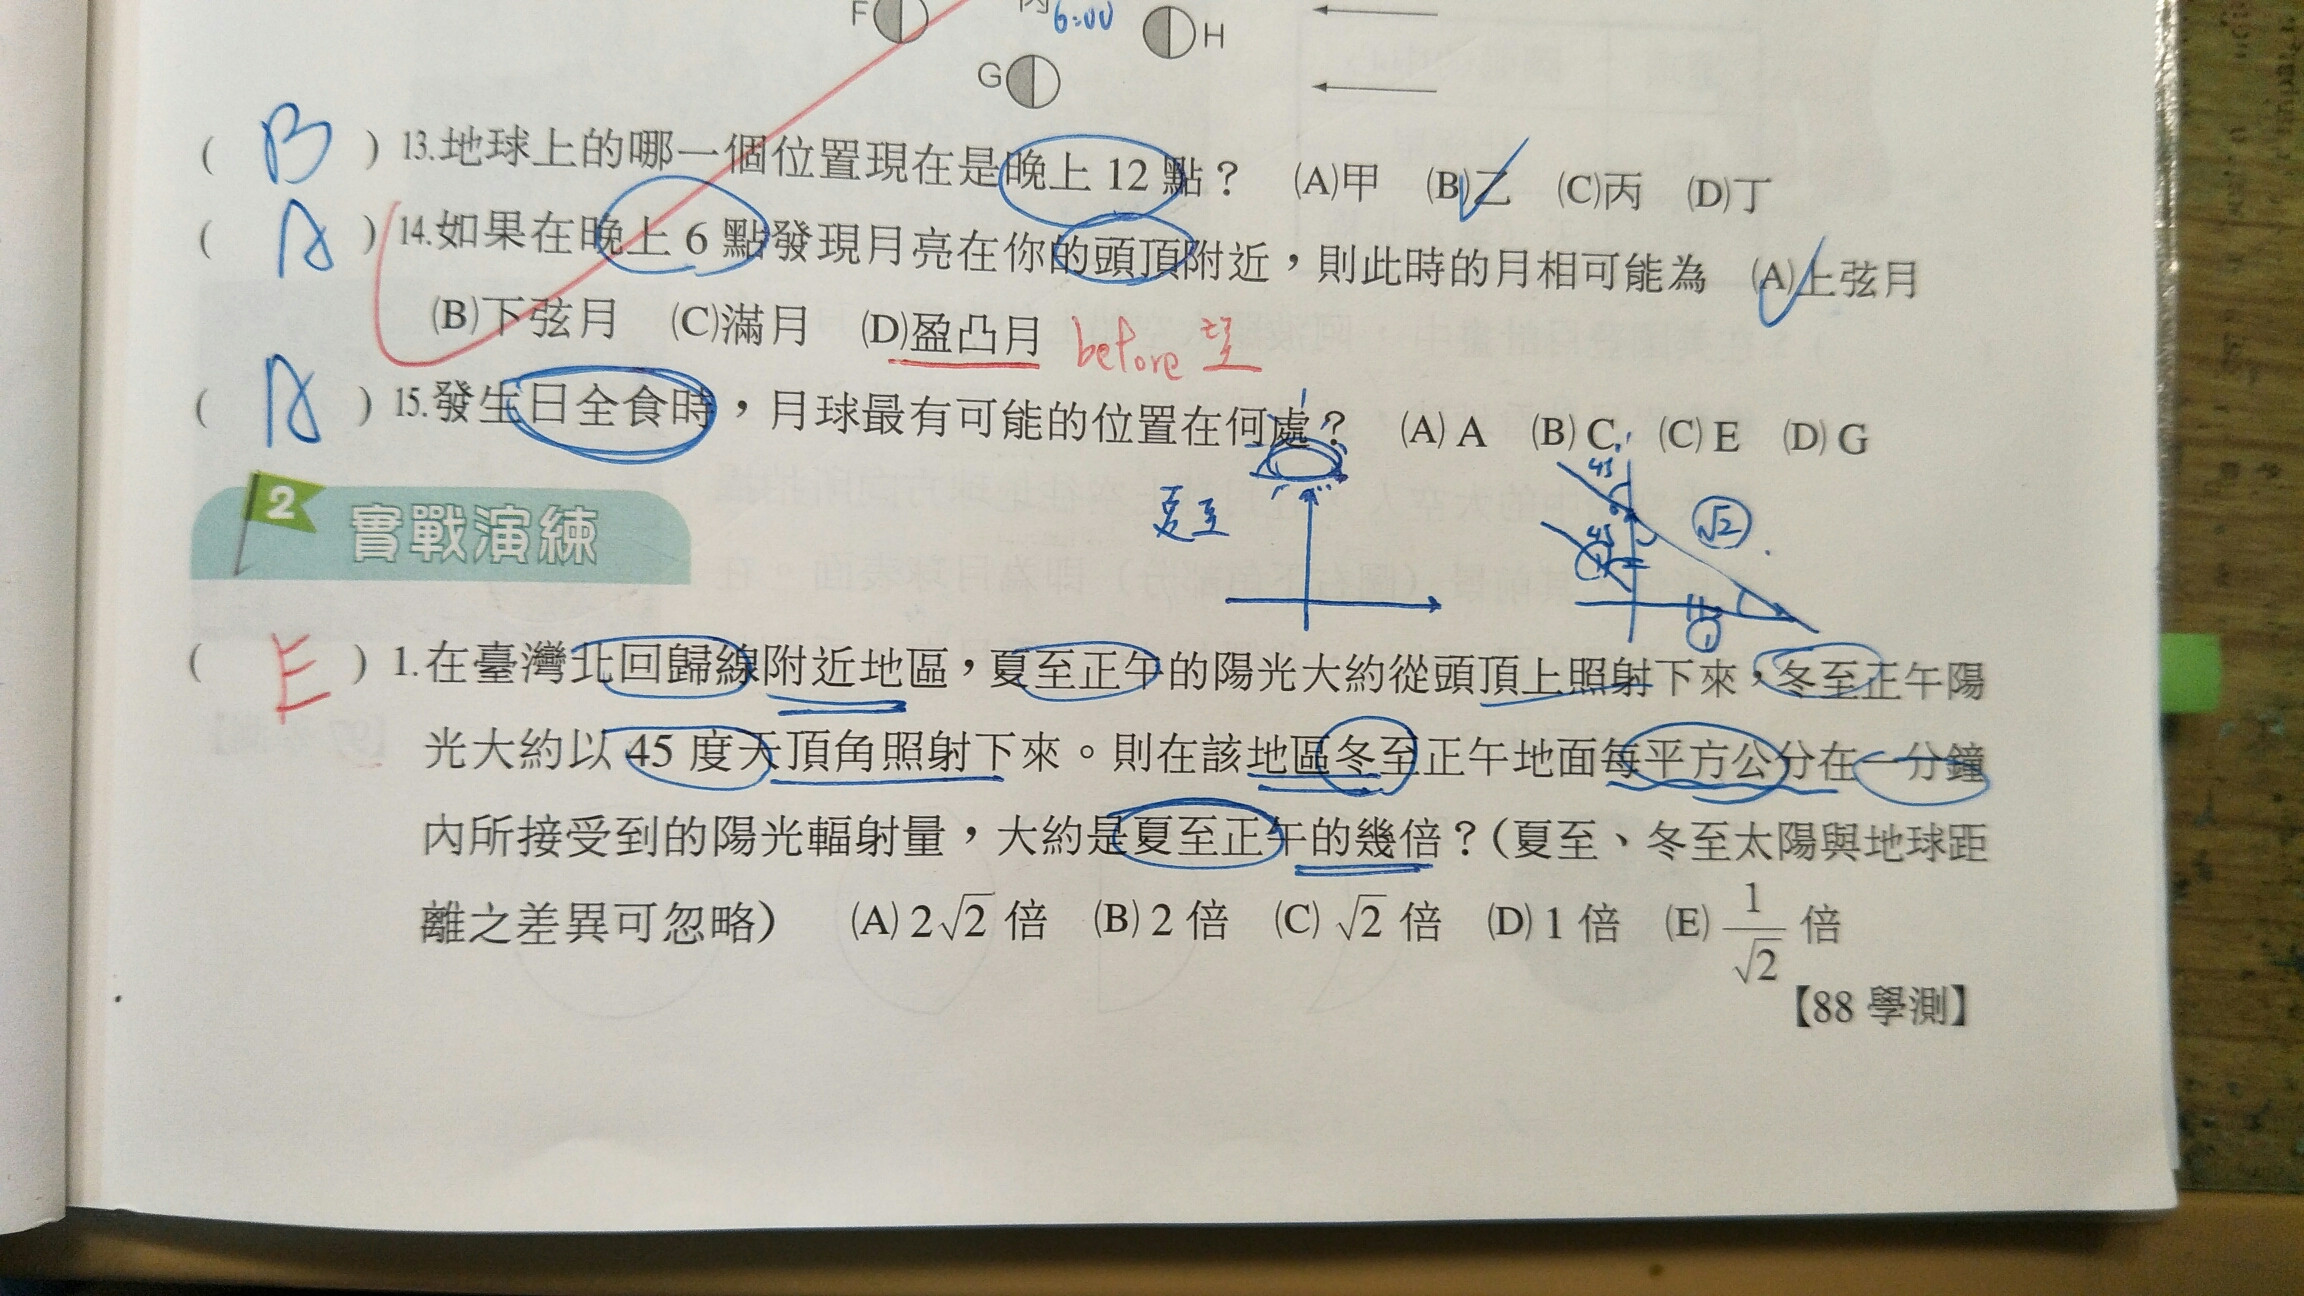 F 丙 6:00 H
G
( B ) 13.地球上的哪一個位置現在是晚上 12 點？ (A)甲 (B)乙 (C)丙 (D)丁
( A ) 14.如果在晚上 6 點發現月亮在你的頭頂附近，則此時的月相可能為 (A)上弦月
(B)下弦月 (C)滿月 (D)盈凸月 before 望
( A ) 15.發生日全食時，月球最有可能的位置在何處？ (A) A (B) C (C) E (D) G
45
2 實戰演練 夏至 45 √2
1 1
( E ) 1.在臺灣北回歸線附近地區，夏至正午的陽光大約從頭頂上照射下來，冬至正午陽
光大約以 45 度天頂角照射下來。則在該地區冬至正午地面每平方公分在一分鐘
內所接受到的陽光輻射量，大約是夏至正午的幾倍？（夏至、冬至太陽與地球距
離之差異可忽略） (A) 2√2 倍 (B) 2 倍 (C) √2 倍 (D) 1 倍 (E) 1/√2 倍
【88 學測】